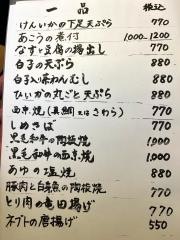 一品 税込
けんいかの下足天ぷら 770
あこうの煮付 1000~1200
なすと豆腐の揚出し 770
白子の天ぷら 880
白子入り茶わんむし 880
ひいかの丸ごと天ぷら 880
西京焼(真鯛又はさわら) 770
しめさば 770
黒毛和牛の陶板焼 1,900
黒毛和牛の西京焼 1,000
あゆの塩焼 880
豚肉と白身魚の陶板焼 770
とり肉の竜田揚げ 770
ネブトの唐揚げ 550